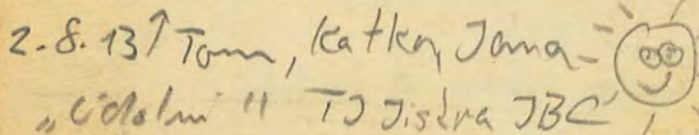 2.8.13↑ Tom, Katka, Jana -
„Údolní" TJ Jiskra JBC,